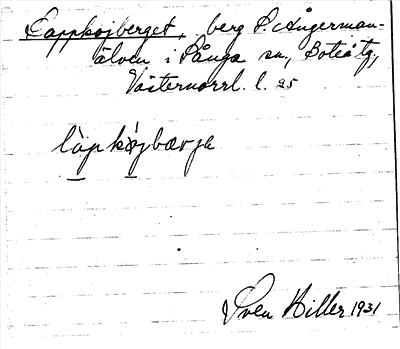 Lappkojberget, berg S. Ångerman-
älven i Sånga sn, Boteå tg,
Västernorrl. l. 25
làpkòjbærje
Sven Hiller 1931